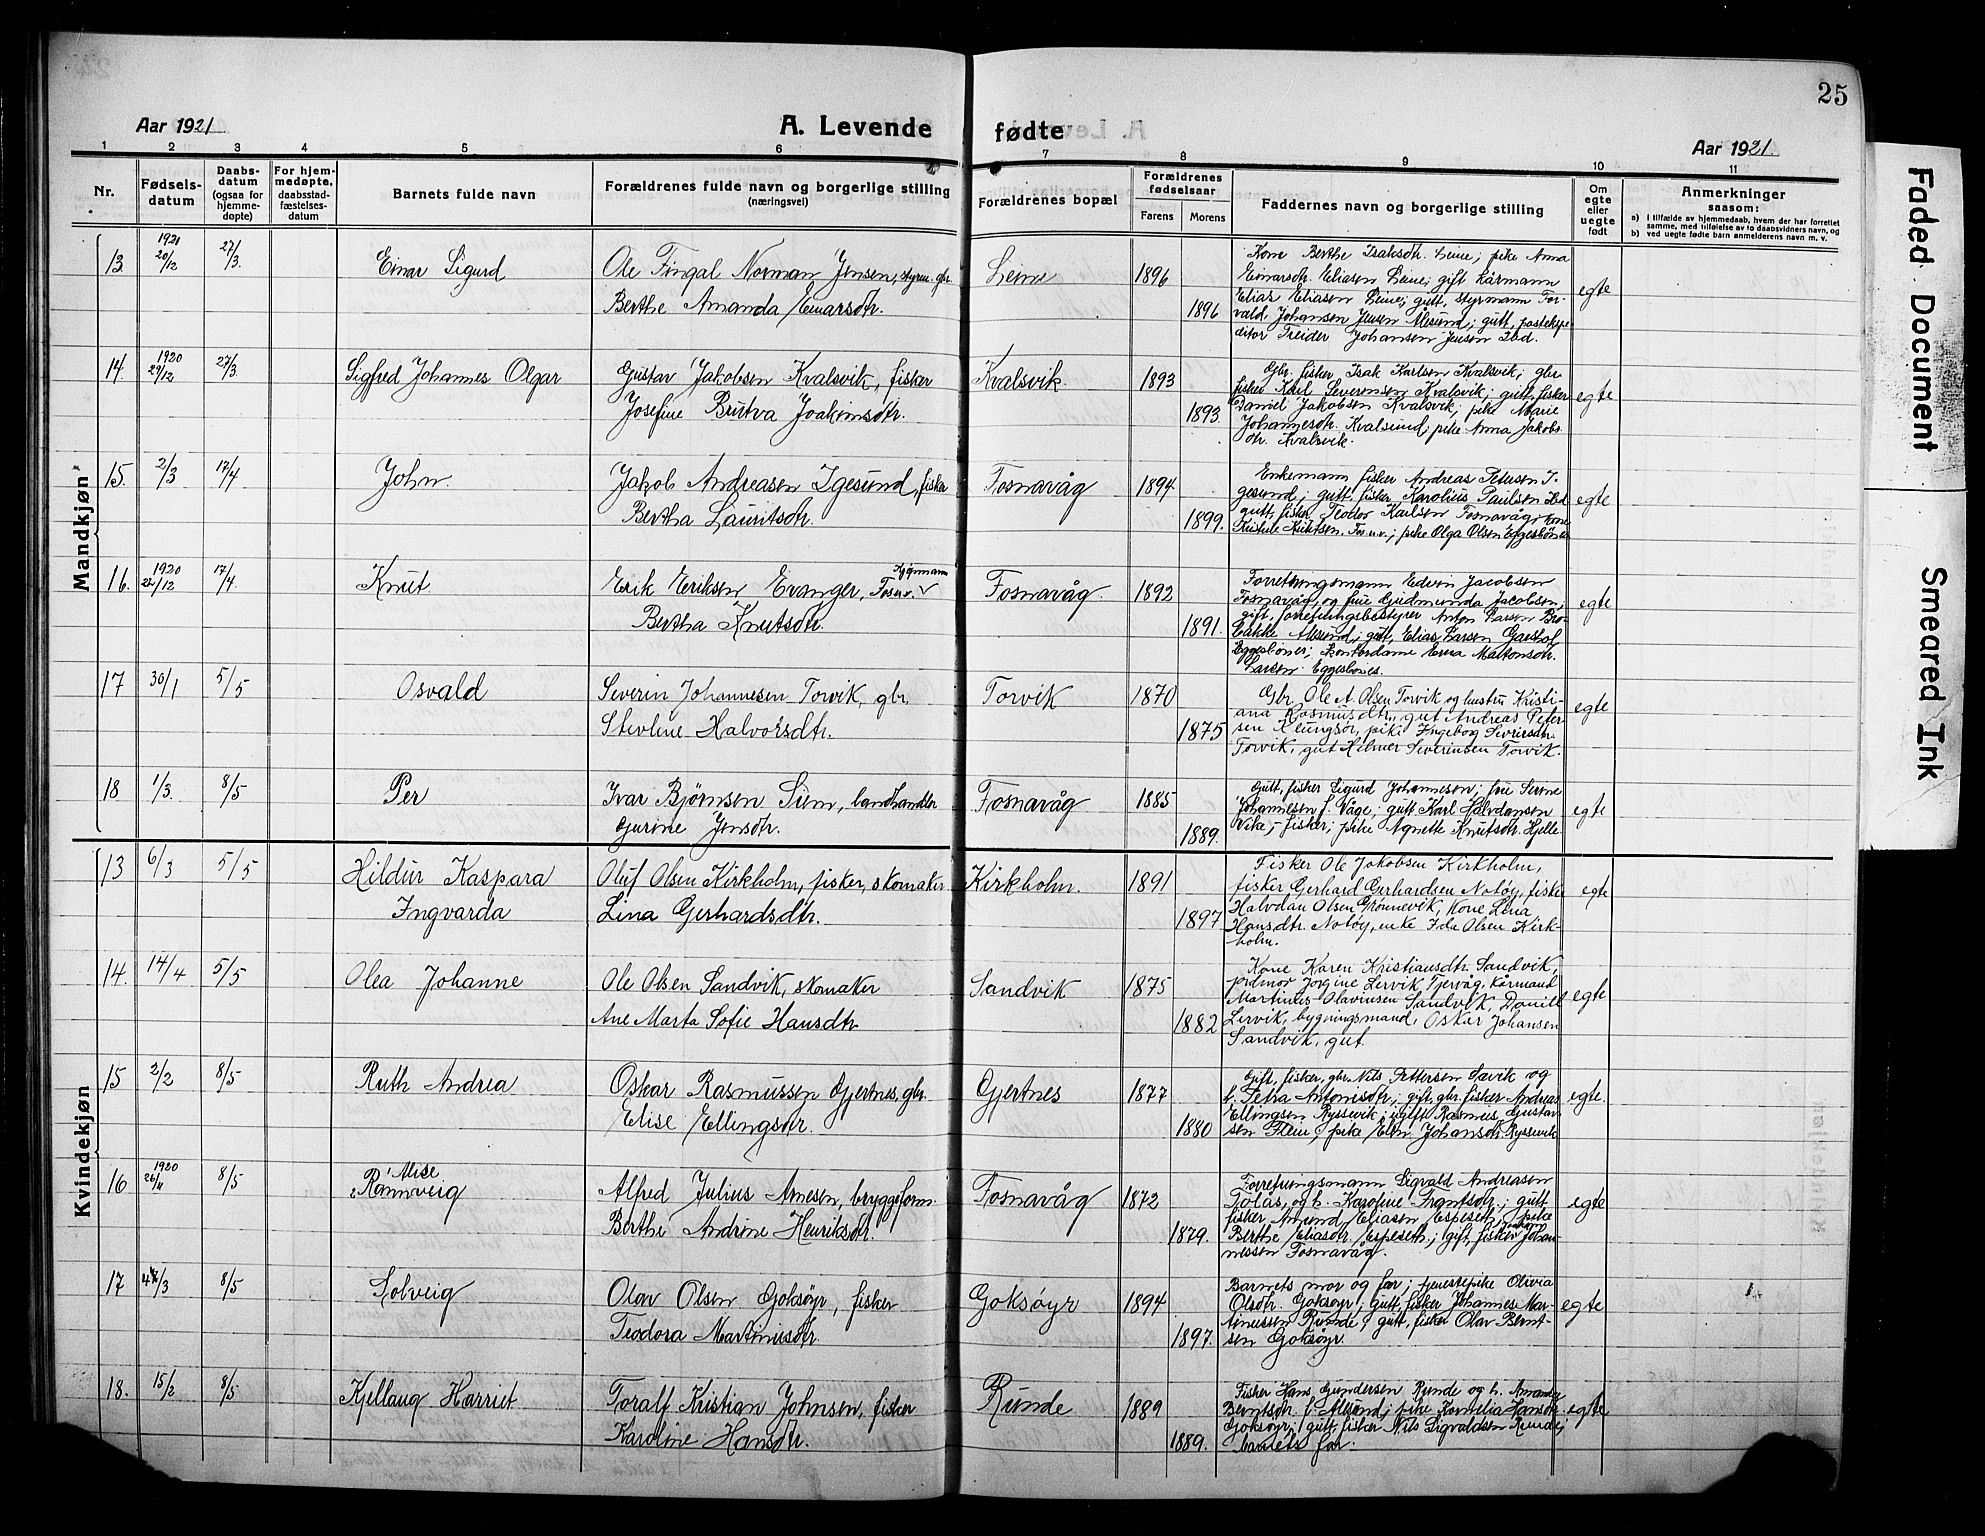 25
Aar 1921
A. Levende
fødte
Aar 1921.
1 2 3 4 5 6 7 8 9 10 11
Nr.
Fødsels-
datum
Daabs-
datum
(ogsaa for
hjemme-
døpte)
For hjem-
medøpte,
daabsstad-
fæstelses-
datum
Barnets fulde navn
Forældrenes fulde navn og borgerlige stilling
(næringsvei)
Forældrenes bopæl
Forældrenes
fødselsaar
Farens Morens
Faddernes navn og borgerlige stilling
Om
egte
eller
uegte
født
Anmerkninger
saasom:
a) I tilfælde av hjemmedaab, hvem der har forrettet
samme, med tilføielse av to daabsvidners navn, og
b) ved uegte fødte barn anmelderens navn m. v.
Mandkjøn
13. 1920 20/12 27/3. Einar Sigurd
Ole Fingal Norman Jensen, styrm. gbr.
Berthe Amanda Einarsdtr.
Leine 1896 1896
Kone Berthe Isaksdtr. Leine; pike Anna
Einarsdtr. Eliasen Leine; gift kårmann
Elias Eliasen Leine; gutt, styrmann Tor-
vald Johansen Jensen Ålesund; gutt, postekspe-
ditør Treider Johansen Jensen Ibd.
egte
14. 1920 29/12 27/3. Sigfred Johannes Olgar
Gustav Jakobsen Kvalsvik, fisker
Josefine Brutva Joakimsdtr.
Kvalsvik. 1893 1893.
Gbr. fisker Isak Karlsen Kvalsvik; gbr
fisker Karl Severinsen Kvalsvik; gutt, fisker
Daniel Jakobsen Kvalsvik; pike Marie
Johannesdtr. Kvalsund; pike Anna Jakobs
dtr. Kvalsvik.
egte
15. 2/3 17/4 John.
Jakob Andreasen Igesund, fisker
Bertha Lauritsdtr.
Fosnavåg 1894 1899.
Enkemann fisker Andreas Petersen I-
gesund; gutt. fisker Karolius Paulsen Ibd.
gutt, fisker Teodor Karlsen Fosnavåg; kone
Fosnv.; pike Olga Olsen Eggesbönes
egte
16. 1920 22/12 17/4 Knut
Erik Eriksen Evanger, Kjøpmann Fosnv.
Bertha Knutsdtr.
Fosnavåg 1892 1891.
Forretningsmann Edvin Jacobsen
Fosnavåg, og frue Gudmunda Jacobsen;
gift, forretningsbestyrer Anton Larsen Bro-
bakke Ålesund; gutt, Elias Larsen
Eggesbönes; Kontordame Erna
Larsen Eggesbönes.
egte
17 30/1 5/5 Osvald
Severin Johannesen Torvik, gbr.
Stevline Halvorsdtr.
Torvik 1870 1875
Gbr. Ole A. Olsen Torvik og hustru Kristi-
ana Rasmusdtr, gut Andreas Peter-
sen Klungsør, pike Ingeborg Severinsdtr.
Torvik, gut Hilmer Severinsen Torvik.
egte
18 1/3. 8/5 Per
Ivar Bjørnsen Siem, landhandler
Gurine Jensdtr.
Fosnavåg 1885 1889.
Gutt, fisker Sigurd Johannesen; frue Serine
Johannesen f. Våge; gutt Karl Halvdansen
Vike, fisker; pike Agnette Knutsdtr. Hjelle
egte
Kvindekjøn
13 6/3 5/5 Hildur Kaspara
Ingvarda
Oluf Olsen Kirkholm, fisker, skomaker
Lina Gerhardsdtr.
Kirkholm. 1891 1897
Fisker Ole Jakobsen Kirkholm,
fisker Gerhard Gerhardsen Notöy, fisker
Halvdan Olsen Grønnevik, kone Lina
Hansdtr. Notöy, enke Ida Olsen Kirk-
holm.
egte
14. 14/4 5/5 Olea Johanne
Ole Olsen Sandvik, skomaker
Ane Marta Sofie Hansdtr
Sandvik 1875 1882
Kone Karen Kristiansdtr. Sandvik,
jordmor Jorgine Lervik Tjervåg, kårmand
Martinus Olavinsen Sandvik, Daniel
Lervik, bygningsmand, Oskar Johansen
Sandvik, gut.
egte
15 2/2 8/5 Ruth Andrea
Oskar Rasmussen Gjertnes, gbr.
Elise Ellingsdtr.
Gjertnes 1877 1880
Gift, fisker, gbr. Nils Pettersen Sævik og
h. Petra Antonisdtr.; gift, gbr. fisker Andreas
Ellingsen Ryssevik; ugift Rasmus Gustav
sen Flein; pike Elen Johansdtr. Ryssevik
egte.
16 1920 26/11 8/5 Alise
Rannveig
Alfred Julius Arnesen, bryggeform.
Berthe Andrine Henriksdtr.
Fosnavåg 1872 1879.
Forretningsmann Sigvald Andreasen
Golås, og h. Karoline Frantsdtr.; gutt,
fisker Amund Eliasen Espeseth; pike
Berthe Eliasdtr. Espeseth.; gift, fisker Johan-
nessen Fosnavåg.
egte
17 4/3 8/5 Solveig
Olav Olsen Goksöyr, fisker
Teodora Martinusdtr.
Goksöyr 1894 1897.
Barnets mor og far; tjenestepike Olivia
Olsdtr. Goksöyr; gutt, fisker Johannes Mar-
tinussen Runde; gutt, fisker Olav Bernt-
sen Goksöyr.
egte
18. 15/2 8/5 Kjellaug Harriet
Toralf Kristian Johnsen, fisker
Karoline Hansdtr.
Runde 1889 1889.
Fisker Hans Gundersen Runde og h. Amanda
Berntsdtr. f. Ålesund; pike Kornelia Hansdtr.
Goksöyr; gutt, fisker Nils Sigvaldsen Runde;
barnets far.
egte
Faded Document Smeared Ink